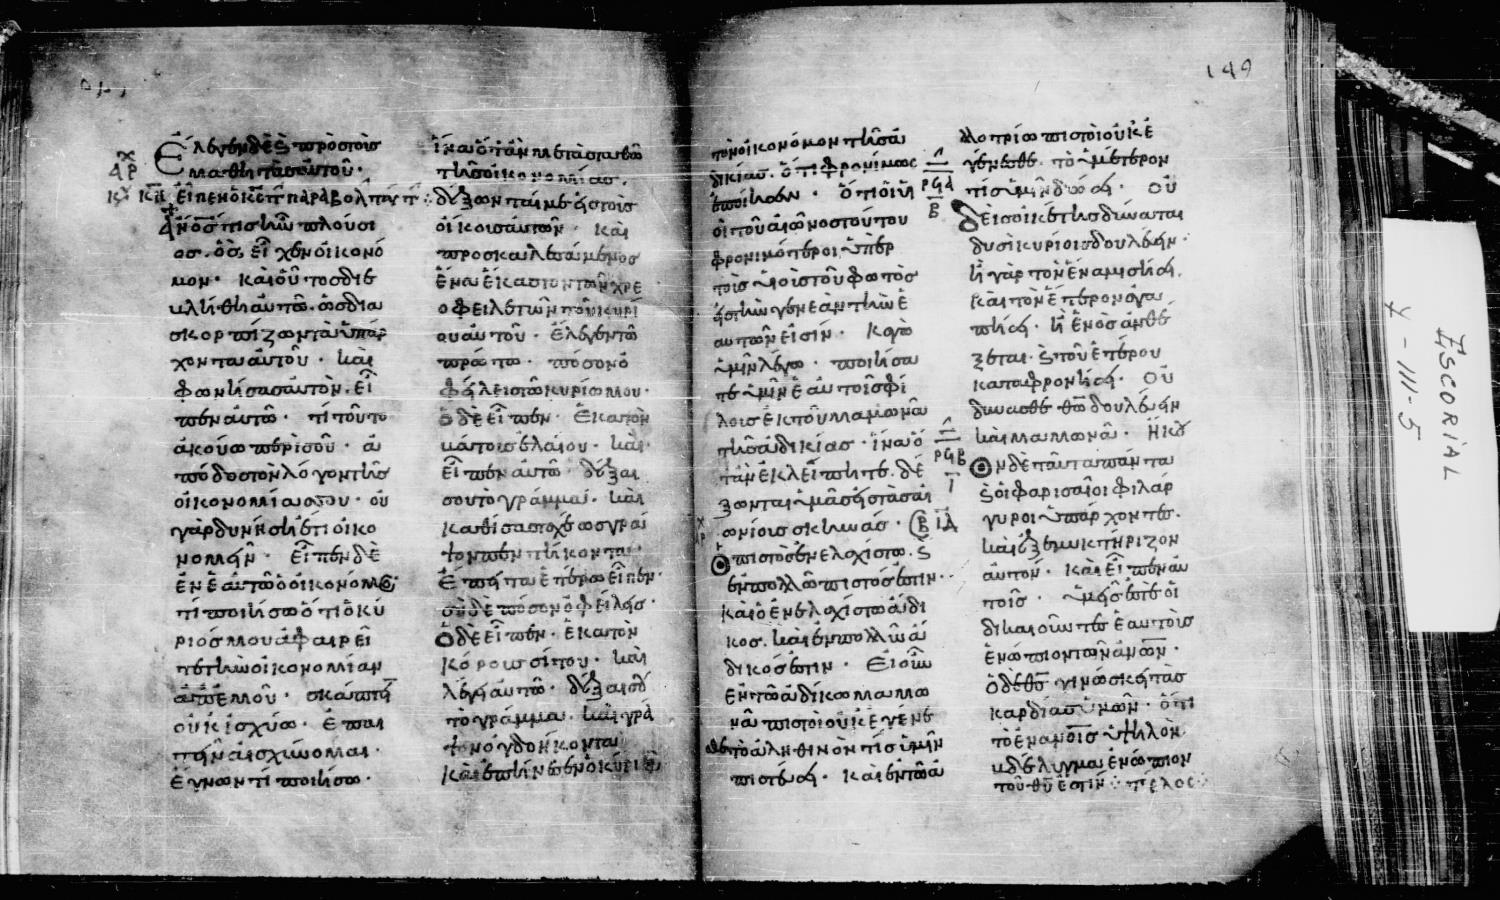 149
Ἔλεγεν δὲ ϗ πρὸς τοὺς
μαθητὰς αὐτοῦ·
εἶπεν ὁ κς τὴν παραβολὴν ταύτην
ἄνος τίς ἦν πλούσι
ος· ὃς εἶχεν οἰκονό
μον· καὶ οὗτος διε
βλήθη αὐτῶ· ὡς δια
σκορπίζων τὰ ὑπάρ
χοντα αὐτοῦ· καὶ
φωνήσας αὐτὸν· εἶ
πεν αὐτῶ· τί τοῦτο
ἀκούω περὶ σοῦ· ἀ
πόδος τὸν λόγον τῆς
οἰκονομίας σου· οὐ
γὰρ δυνήσῃ ἔτι οἰκο
νομεῖν· εἶπεν δὲ
ἐν ἑαυτῶ ὁ οἰκονόμος·
τί ποιήσω ὅτι ὁ κύ
ριός μου ἀφαιρεῖ
τε τὴν οἰκονομίαν
ἀπ' ἐμοῦ· σκάπτειν
οὐκ ἰσχύω· ἐπαι
τεῖν αἰσχύνομαι·
ἔγνων τί ποιήσω·
ἵνα ὅταν μετασταθῶ
τῆς οἰκονομίας·
δέξωνταί με εἰς τοὺς
οἴκους αὐτῶν· καὶ
προσκαλεσάμενος
ἕνα ἕκαστον τῶν χρε
οφειλετῶν τοῦ κυρί
ου αὐτοῦ· ἔλεγεν τῶ
πρώτω· πόσον ὀ
φείλεις τῶ κυρίω μου·
ὁ δὲ εἶπεν· ἑκατὸν
βάτους ἐλαίου· καὶ
εἶπεν αὐτῶ· δέξαι
σου τὸ γράμμα· καὶ
καθίσας ταχέως γρά
ψον πεντήκοντα·
ἔπειτα ἑτέρω εἶπεν·
σὺ δὲ πόσον ὀφείλεις·
ὁ δὲ εἶπεν· ἑκατὸν
κόρους σίτου· καὶ
λέγει αὐτῶ· δέξαι σου
τὸ γράμμα· καὶ γρά
ψον ὀγδοήκοντα
καὶ ἐπήνεσεν ὁ κύριος
τὸν οἰκονόμον τῆς ἀ
δικίας· ὅτι φρονίμως
ἐποίησεν· ὅτι οἱ υἱ
οὶ τοῦ αἰῶνος τούτου
φρονιμότεροι ὑπὲρ
τοὺς υἱοὺς τοῦ φωτὸς
εἰς τὴν γενεὰν τὴν ἑ
αυτῶν εἰσίν· καγὼ
ὑμῖν λέγω· ποιήσα
τε ὑμῖν ἑαυτοῖς φί
λους ἐκ τοῦ μαμωνᾶ
τῆς ἀδικίας· ἵνα ὅ
ταν ἐκλείπητε· δέ
ξωνται ὑμᾶς εἰς τὰς αἰ
ωνίους σκηνάς·
ὁ πιστὸς ἐν ἐλαχίστω· ϗ
ἐν πολλῶ πιστός ἐστιν·
καὶ ὁ ἐν ἐλαχίστω ἄδι
κος· καὶ ἐν πολλῶ ἄ
δικός ἐστιν· εἰ οὖν
ἐν τῶ ἀδίκω μαμω
νᾶ πιστοὶ οὐκ ἐγένε
σθε τὸ ἀληθινὸν τίς ὑμῖν
πιστεύσει· καὶ εἰ ἐν τῶ ἀ
λλοτρίω πιστοὶ οὐκ ἐ
γένεσθε· τὸ ὑμέτερον
τίς ὑμῖν δώσει· οὐ
δεὶς οἰκέτης δύναται
δυσὶ κυρίοις δουλεύειν·
ἢ γὰρ τὸν ἕνα μισήσει·
καὶ τὸν ἕτερον ἀγα
πήσει· ἢ ἑνὸς ἀνθέ
ξεται· ϗ τοῦ ἑτέρου
καταφρονήσει· οὐ
δύνασθε θῶ δουλεύειν
καὶ μαμωνᾶ· ἤκου
ον δὲ ταῦτα πάντα
ϗ οἱ φαρισαῖοι φιλάρ
γυροι ὑπάρχοντες·
καὶ ἐξεμυκτήριζον
αὐτόν· καὶ εἶπεν αὐ
τοῖς· ὑμεῖς ἐστὲ οἱ
δικαιοῦντες ἑαυτοὺς
ἐνώπιον τῶν ἀνων·
ὁ δὲ θς γινώσκει τὰς
καρδίας ὑμῶν· ὅτι
τὸ ἐν ανοις ὑψηλὸν
βδέλυγμα ἐνώπιον
τοῦ θυ ἐστίν· τέλος
ESCORIAL
Χ-III-5